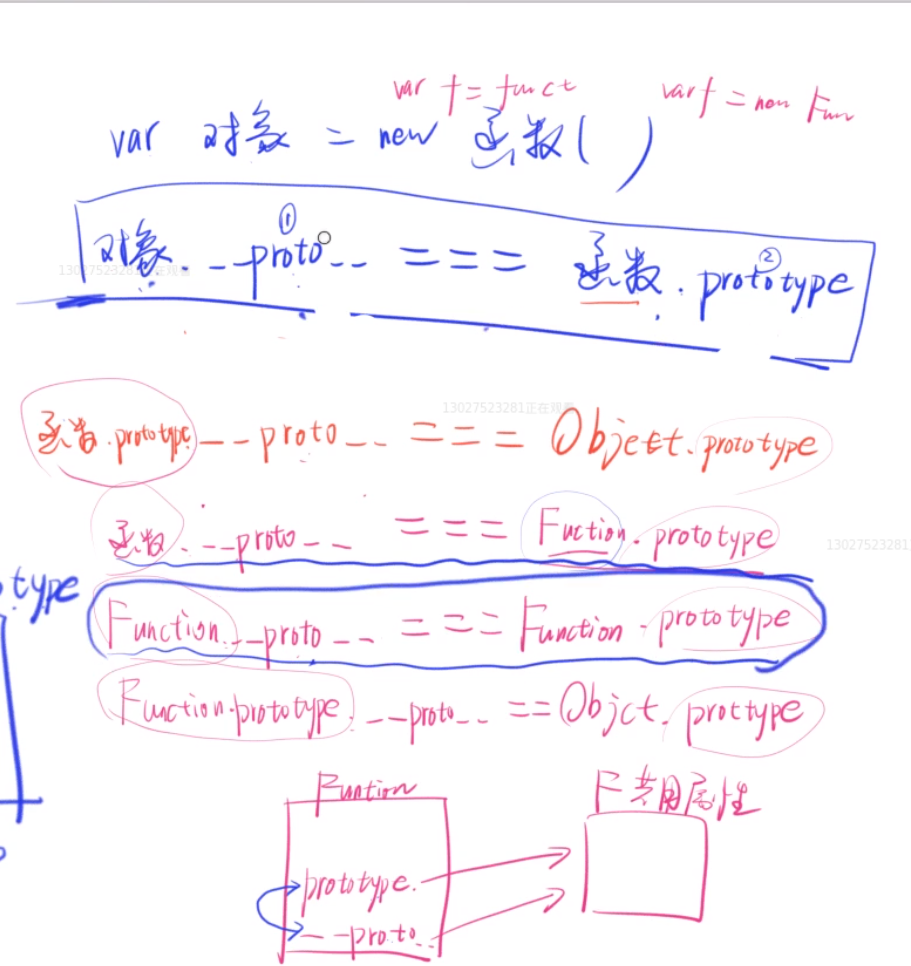 var f = funct    var f = new Fun
var 对象 = new 函数( )
①
对象.__proto__ === 函数.prototype
②
13027523281正在观看
13027523281正在观看
函数.prototype.__proto__ === Object.prototype
函数.__proto__ === Fuction.prototype
13027523281
type
Function.__proto__ === Function.prototype
Function.prototype.__proto__ == Objct.prottype
Funtion    F共用属性
prototype.
__proto__